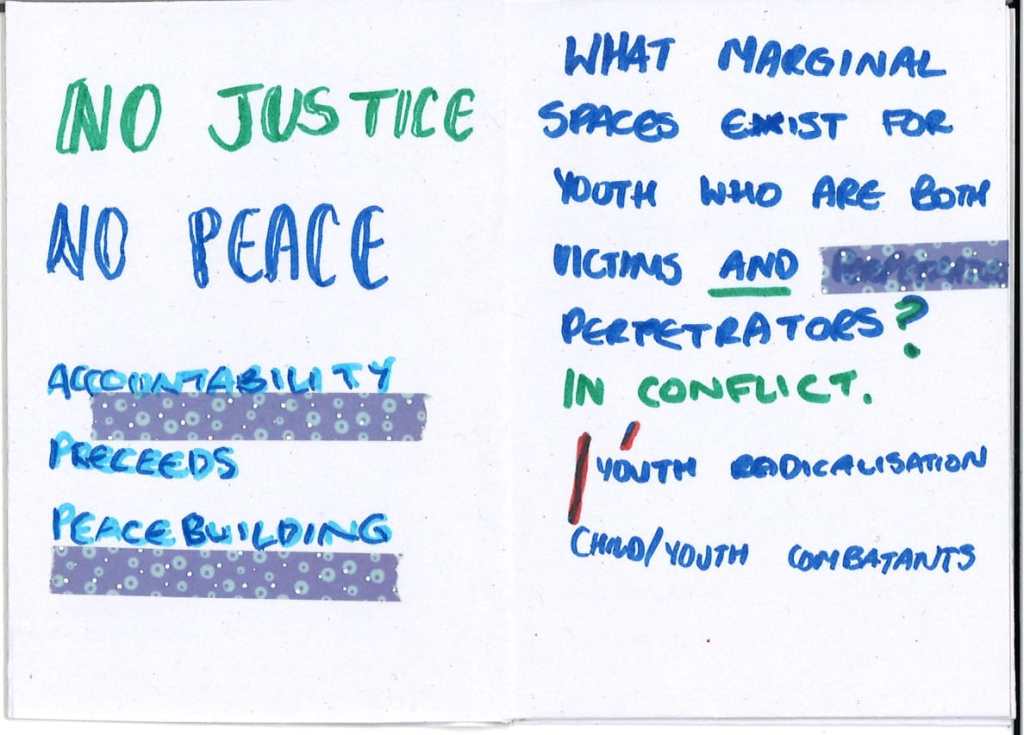 NO JUSTICE
NO PEACE
ACCOUNTABILITY
PRECEEDS
PEACEBUILDING
WHAT MARGINAL
SPACES EXIST FOR
YOUTH WHO ARE BOTH
VICTIMS AND
PERPETRATORS?
IN CONFLICT.
YOUTH RADICALISATION
CHILD/YOUTH COMBATANTS